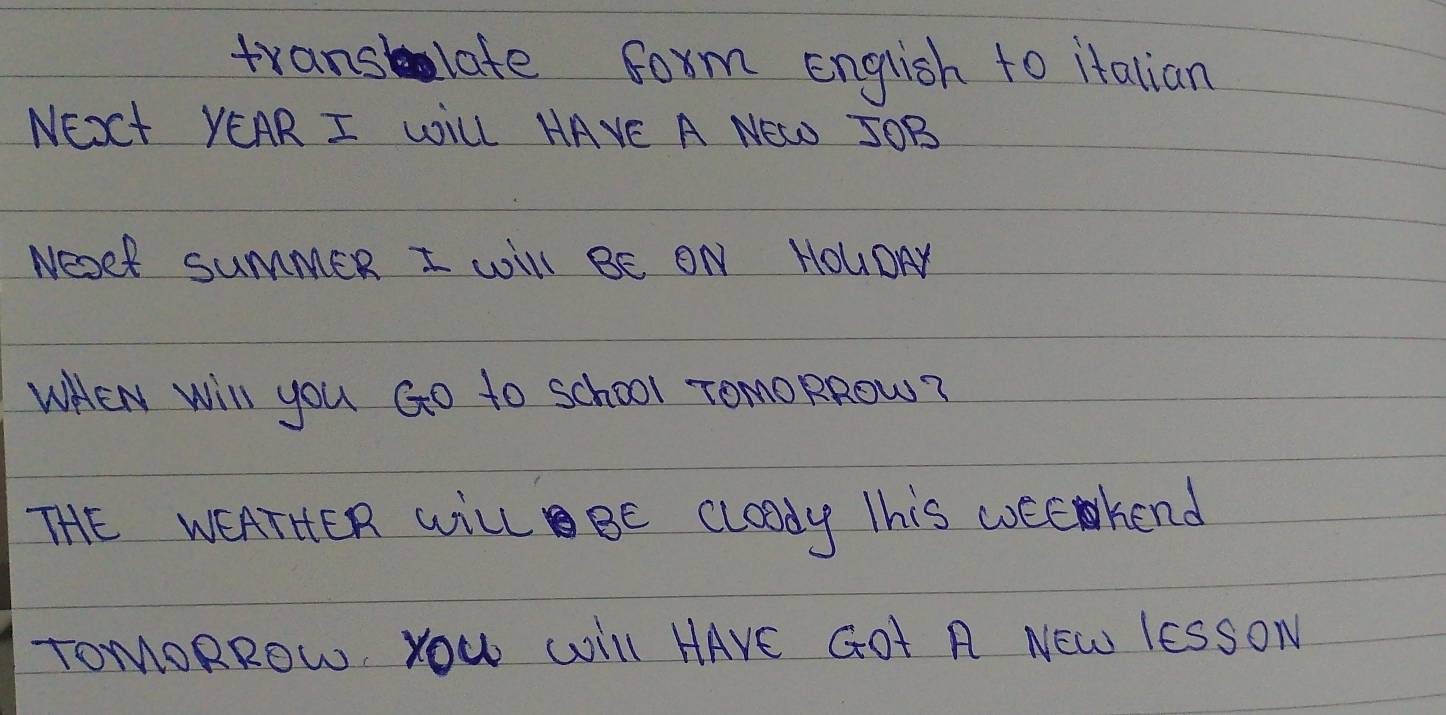 translate form English to italian
NEXt YEAR I will HAVE A NEW JOB
NEXt SUMMER I will BE ON HOLIDAY
WHEN Will you GO to School TOMORROW?
THE WEATHER will BE Cloody this WEEKEnd
TOMORROW. YOU will HAVE GOt A NEW lESSON